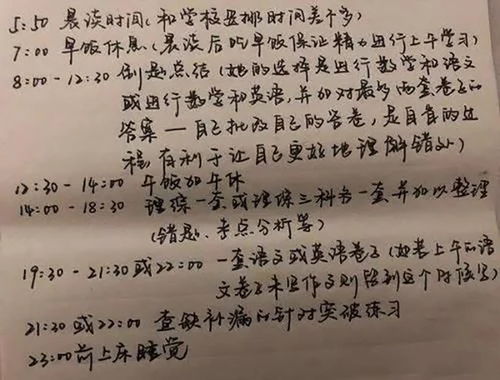 5:50 晨读时间(和学校安排时间差不多)
7:00 早饭休息(晨读后吃早饭保证精力进行上午学习)
8:00-12:30 刷题总结(她的选择是进行数学和语文
或进行数学和英语,并加对最多两套卷子的
答案—自己批改自己的答卷,是自省的过
程,有利于让自己更好地理解错处)
12:30-14:00 午饭加午休
14:00-18:30 理综一套或理综三科各一套并加以整理
(错题、考点分析等)
19:30-21:30或22:00 一套语文或英语卷子(如考上午的语
文卷子未写作文则留到这个时候写)
21:30或22:00 查缺补漏的针对突破练习
23:00前上床睡觉